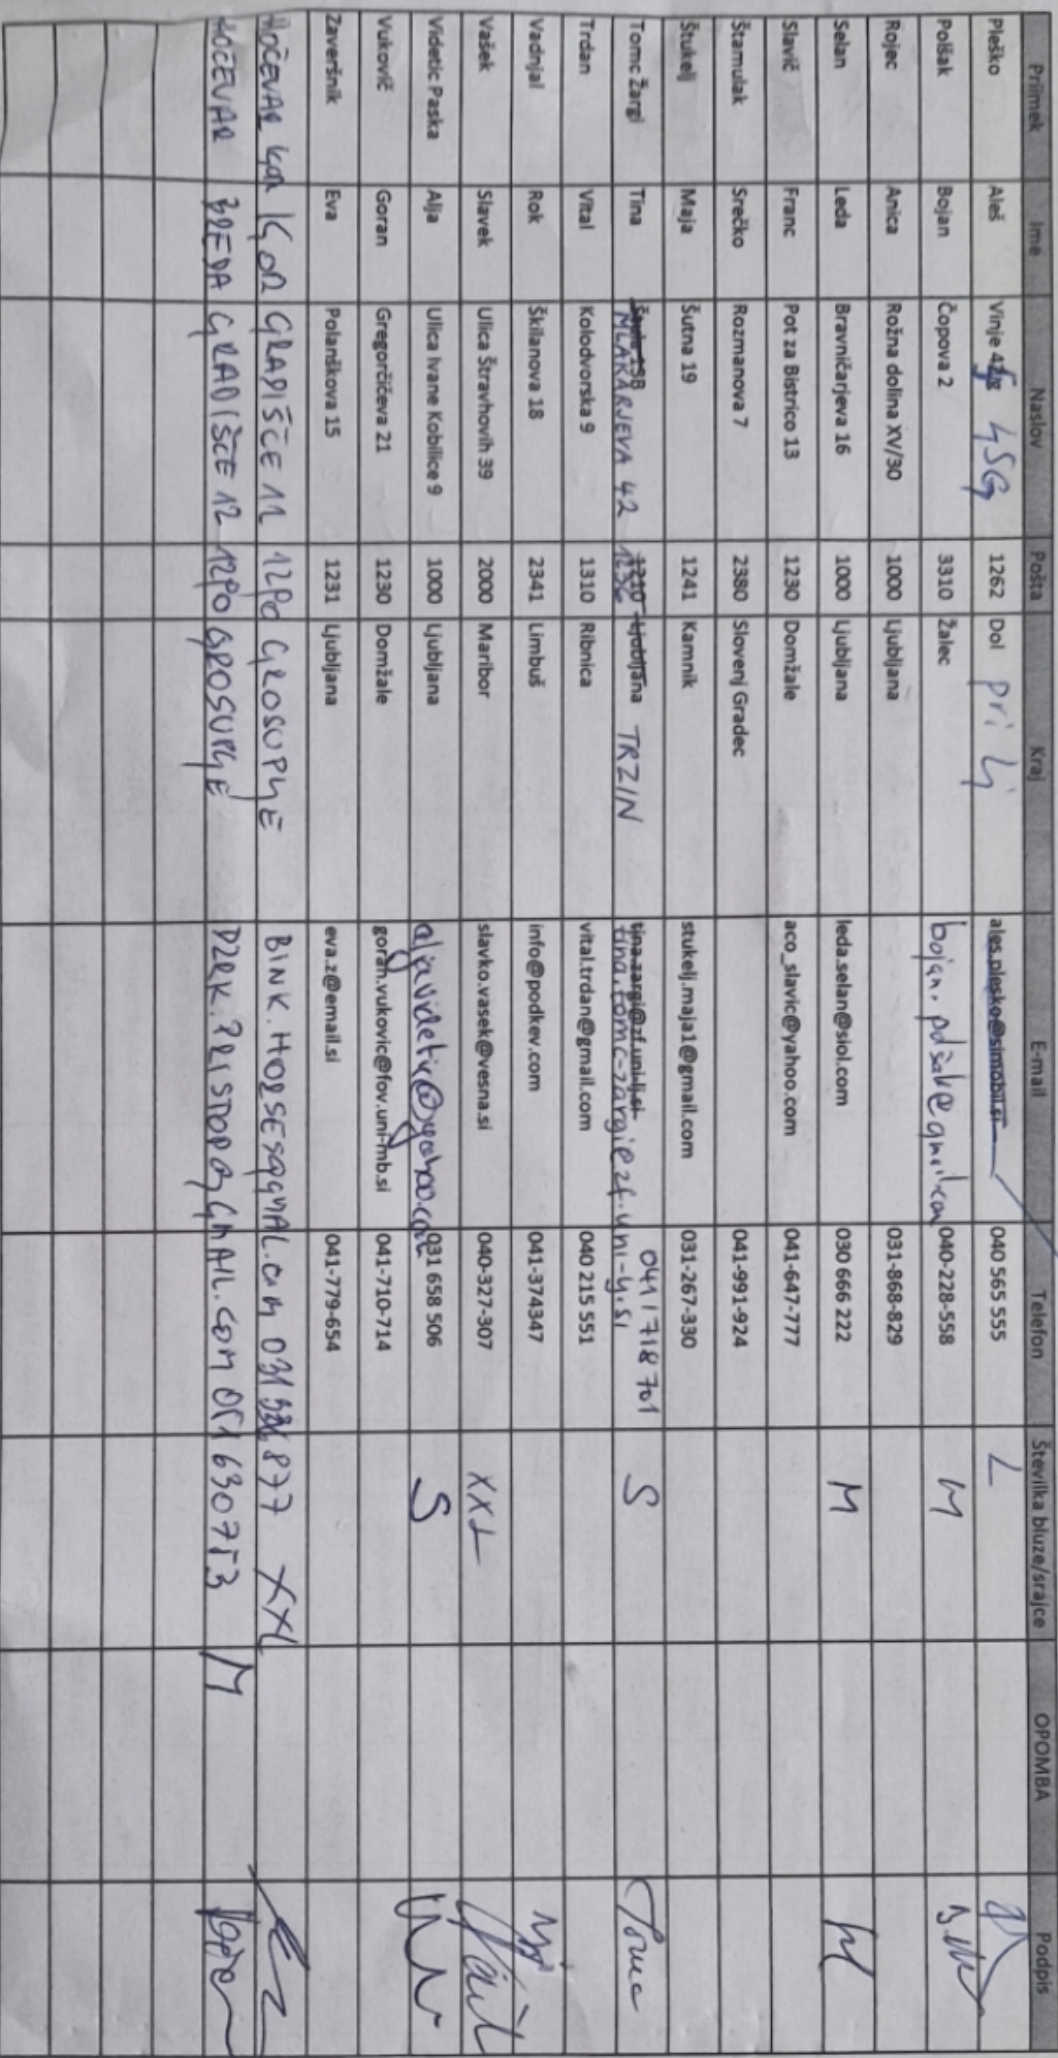 Priimek Ime Naslov Pošta Kraj E-mail Telefon Številka bluze/srajce OPOMBA Podpis
Pleško Aleš Vinje 45G 1262 Dol pri Lj ales.plesko@simobil.si 040 565 555 L
Polšak Bojan Čopova 2 3310 Žalec bojan.polsak@gmail.com 040-228-558 M
Rojec Anica Rožna dolina XV/30 1000 Ljubljana 031-868-829
Selan Leda Bravničarjeva 16 1000 Ljubljana leda.selan@siol.com 030 666 222 M
Slavič Franc Pot za Bistrico 13 1230 Domžale aco_slavic@yahoo.com 041-647-777
Štamulak Srečko Rozmanova 7 2380 Slovenj Gradec 041-991-924
Štukelj Maja Šutna 19 1241 Kamnik stukelj.maja1@gmail.com 031-267-330
Tomc Žargi Tina MLAKARJEVA 42 1236 Ljubljana TRZIN tina.zargi@zf.uni-lj.si tina.tomc-zargi@zf.uni-lj.si 041 718 701 S
Trdan Vital Kolodvorska 9 1310 Ribnica vital.trdan@gmail.com 040 215 551
Vadnjal Rok Škilanova 18 2341 Limbuš info@podkev.com 041-374347
Vašek Slavek Ulica Štravhovih 39 2000 Maribor slavko.vasek@vesna.si 040-327-307 XXL
Videtic Paska Alja Ulica Ivane Kobilice 9 1000 Ljubljana aljavidetic@yahoo.com 031 658 506 S
Vukovič Goran Gregorčičeva 21 1230 Domžale goran.vukovic@fov.uni-mb.si 041-710-714
Zaveršnik Eva Polanškova 15 1231 Ljubljana eva.z@email.si 041-779-654
HOČEVAR IGOR GRADIŠČE 11 1290 GROSUPLJE 031 877 XXL
HOČEVAR BREDA GRADIŠČE 12 1290 GROSUPLJE 051 630753 M